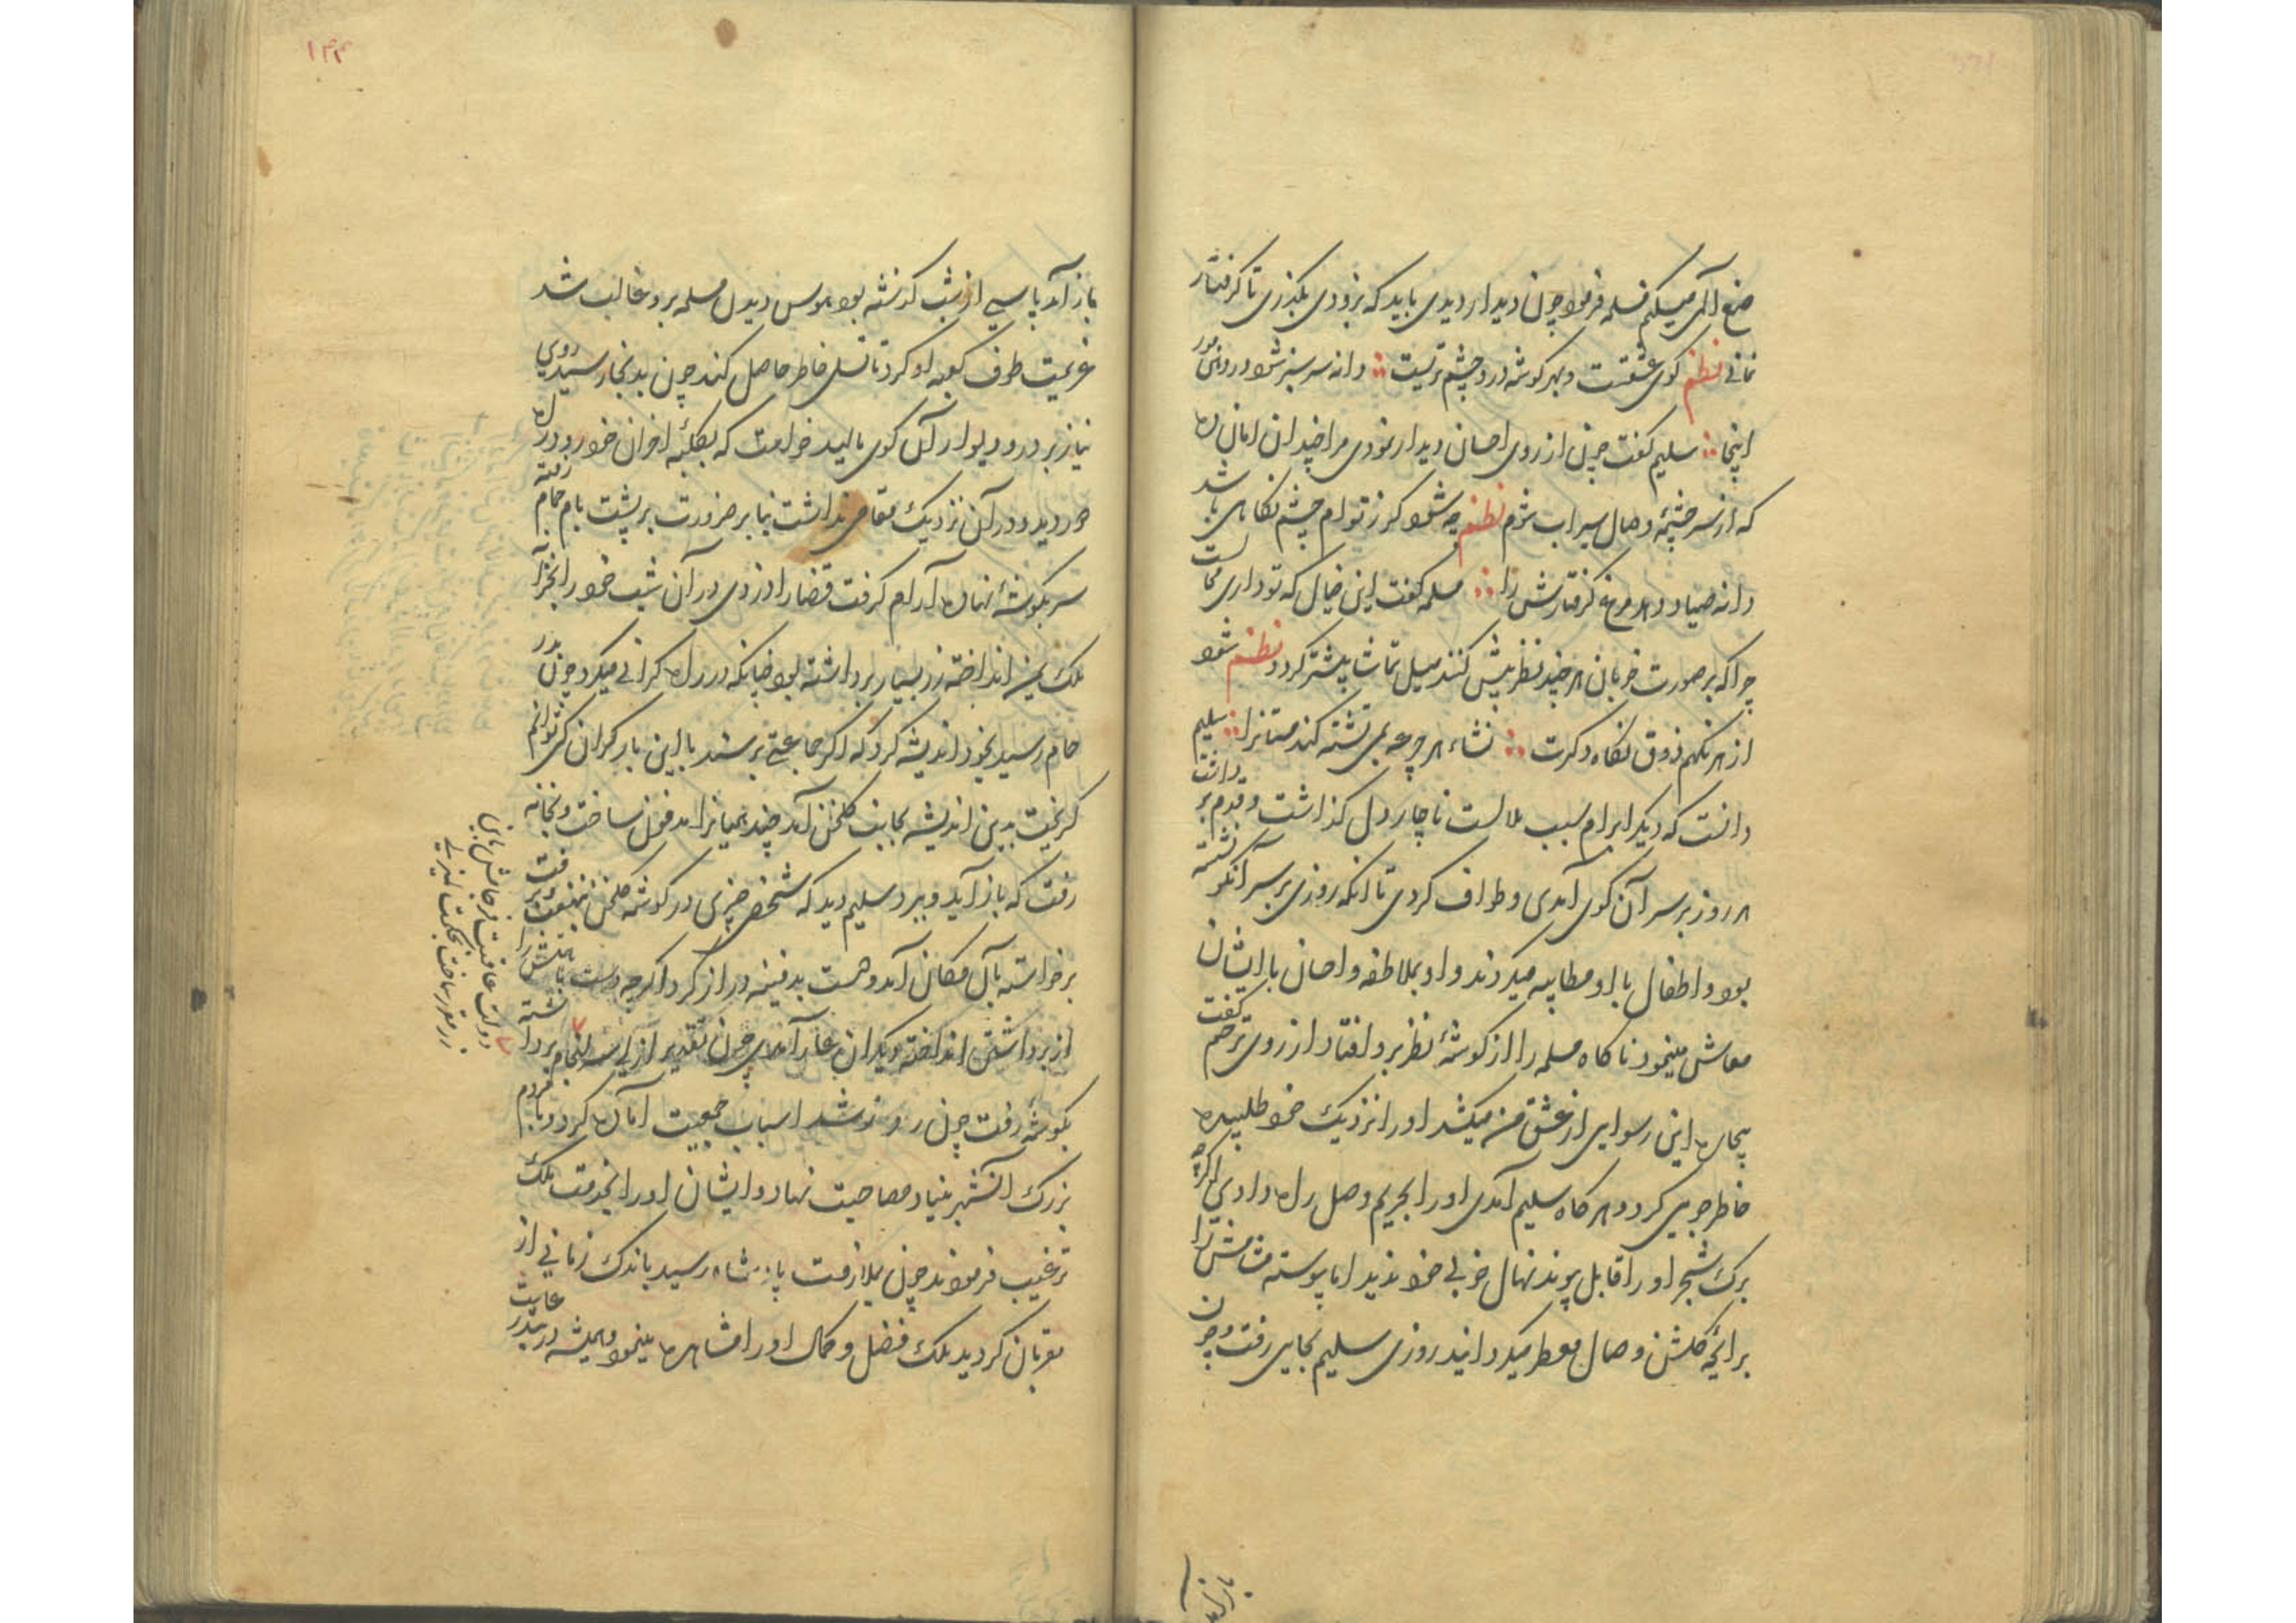 صنع الهی میکنم مسلمه فرمود چون دیدار دیدی باید که بزودی بگذری تا گرفتار
نمانی نظم کوی عشقست و بهر گوشه درو چشم تریست دانه سر سبز شود در دهن مور
اینجا سلیم گفت چون از روی احسان دیدار نمودی مرا چندان امان ده
که از سرچشمه وصال سیراب شوم نظم چه شود کز تو ام چشم نگاهی باشد
دانه صیاد دهد مرغ گرفتارش را مسلمه گفت این خیال که تو داری محالست
چرا که بر صورت خوبان هر چند نظر بیش کنند میل تماشا بیشتر گردد نظم شود
از هر نگهم ذوق نگاه دگرت نشاء هر جرعه می تشنه کند مستانرا سلیم
دانست که دیگر ابرام سبب ملالست ناچار دل گذاشت و قدم برداشت
هر روز بر سر آن کوی آمدی و طواف کردی تا آنکه روزی بر سر آنکو نشسته
بود و اطفال با او مطایبه میکردند و او بملاطفه و احسان با ایشان
معاش مینمود ناگاه مسلمه را از گوشهٔ نظر برو افتاد از روی ترحم گفت
بیچاره این رسوایی از عشق من میکشد او را نزدیک خود طلبیده
خاطر جویی کرد و هر گاه سلیم آمدی او را بحریم وصل راه دادی اگرچه
برگ شجر او را قابل پیوند نهال خوبی خود ندید اما پیوسته مشامش را
برایحه گلشن وصال معطر میگردانید روزی سلیم بجایی رفت و چون
۱۴۴
باز آمد پاسی از شب گذشته بود هوس دیدن مسلمه برو غالب شد
عزیمت طوف کعبه او کرد تا تسلی خاطر حاصل کند چون بدنجا رسید روی
نیاز بر در و دیوار آن کوی مالید خواست که بکلبه احزان خود رود راه
دور دید و در آن نزدیک مقامی نداشت بنابر ضرورت بر پشت بام حمام رفته
سر بگوشهٔ نهاده آرام گرفت قضا را دزدی در آن شب خود را بخزانه
ملک یمن انداخته زر بسیار برداشته بود چنانکه در راه گرانی میکرد چون بدر
حمام رسید بخود اندیشه کرد که اگر جماعتی برسند با این بار گران کی توانم
گریخت بدین اندیشه بجانب گلخن آمد چند همیانرا مدفون ساخت و بخانه
رفت که باز آید و ببرد سلیم دید که شخصی چیزی در گوشه گلخن نهفت و برفت
برخواسته بآن مکان آمد و دست بدفینه دراز کرد اگرچه دست پاکش را
از برداشتن انداخته دیگران عار آمدی چون تقدیر ازلی سرانجام برداشته
بگوشهٔ رفت چون روز شد اسباب جمعیت آماده کرد و با مردم
بزرگ آنشهر بنیاد مصاحبت نهاد و ایشان او را بخدمت ملک
ترغیب فرمودند چون بملازمت پادشاه رسید باندک زمانی از
مقربان گردید ملک فضل و کمال او را مشاهده مینمود و همیشه در تدبیر
دولت عاقبت
زر مقرر ساخت